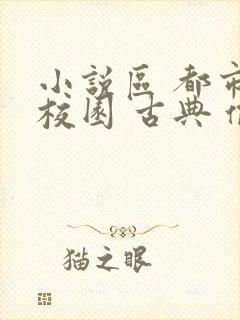 小說區 都市
校園 古典
猫之眼